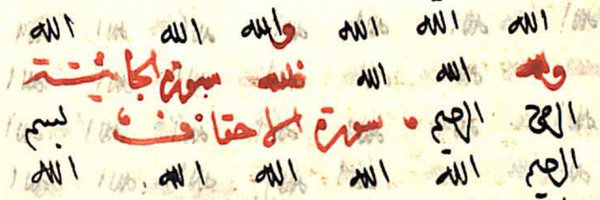 الله الله الله والله الله الله
ولله الله الله فلله سورة الجاثية
الرحمن الرحيم • سورة الاحقاف بسم
الرحيم الله الله الله الله الله